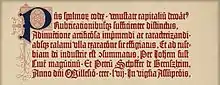 Pns spalmoꝝ codex . venustate capitaliū decorat⁹
Rubricationibusqꝫ sufficienter distinctus,
Adinuentione artificiosa imprimendi ac caracterizandi .
absqꝫ calami vlla exaracione sic effigiatus, Et ad euse-
biam dei industrie est consummatus, Per Iohem fust
Ciuē magūtinū, Et Petrū Schoffer de Gernszheim,
Anno dñi Millesio .cccc. lvij In vigilia Assūpcōis,